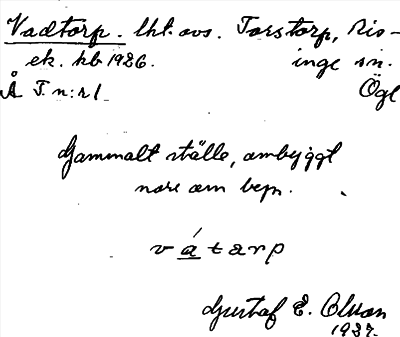 Vadtorp. lht. avs. Torstorp, Ris-
ek. kb 1926. inge sn.
Å T. n:r 1 Ögl
Gammalt ställe, ombyggt
nore om
v á t a r p
Gustaf E. Olsson
1937.